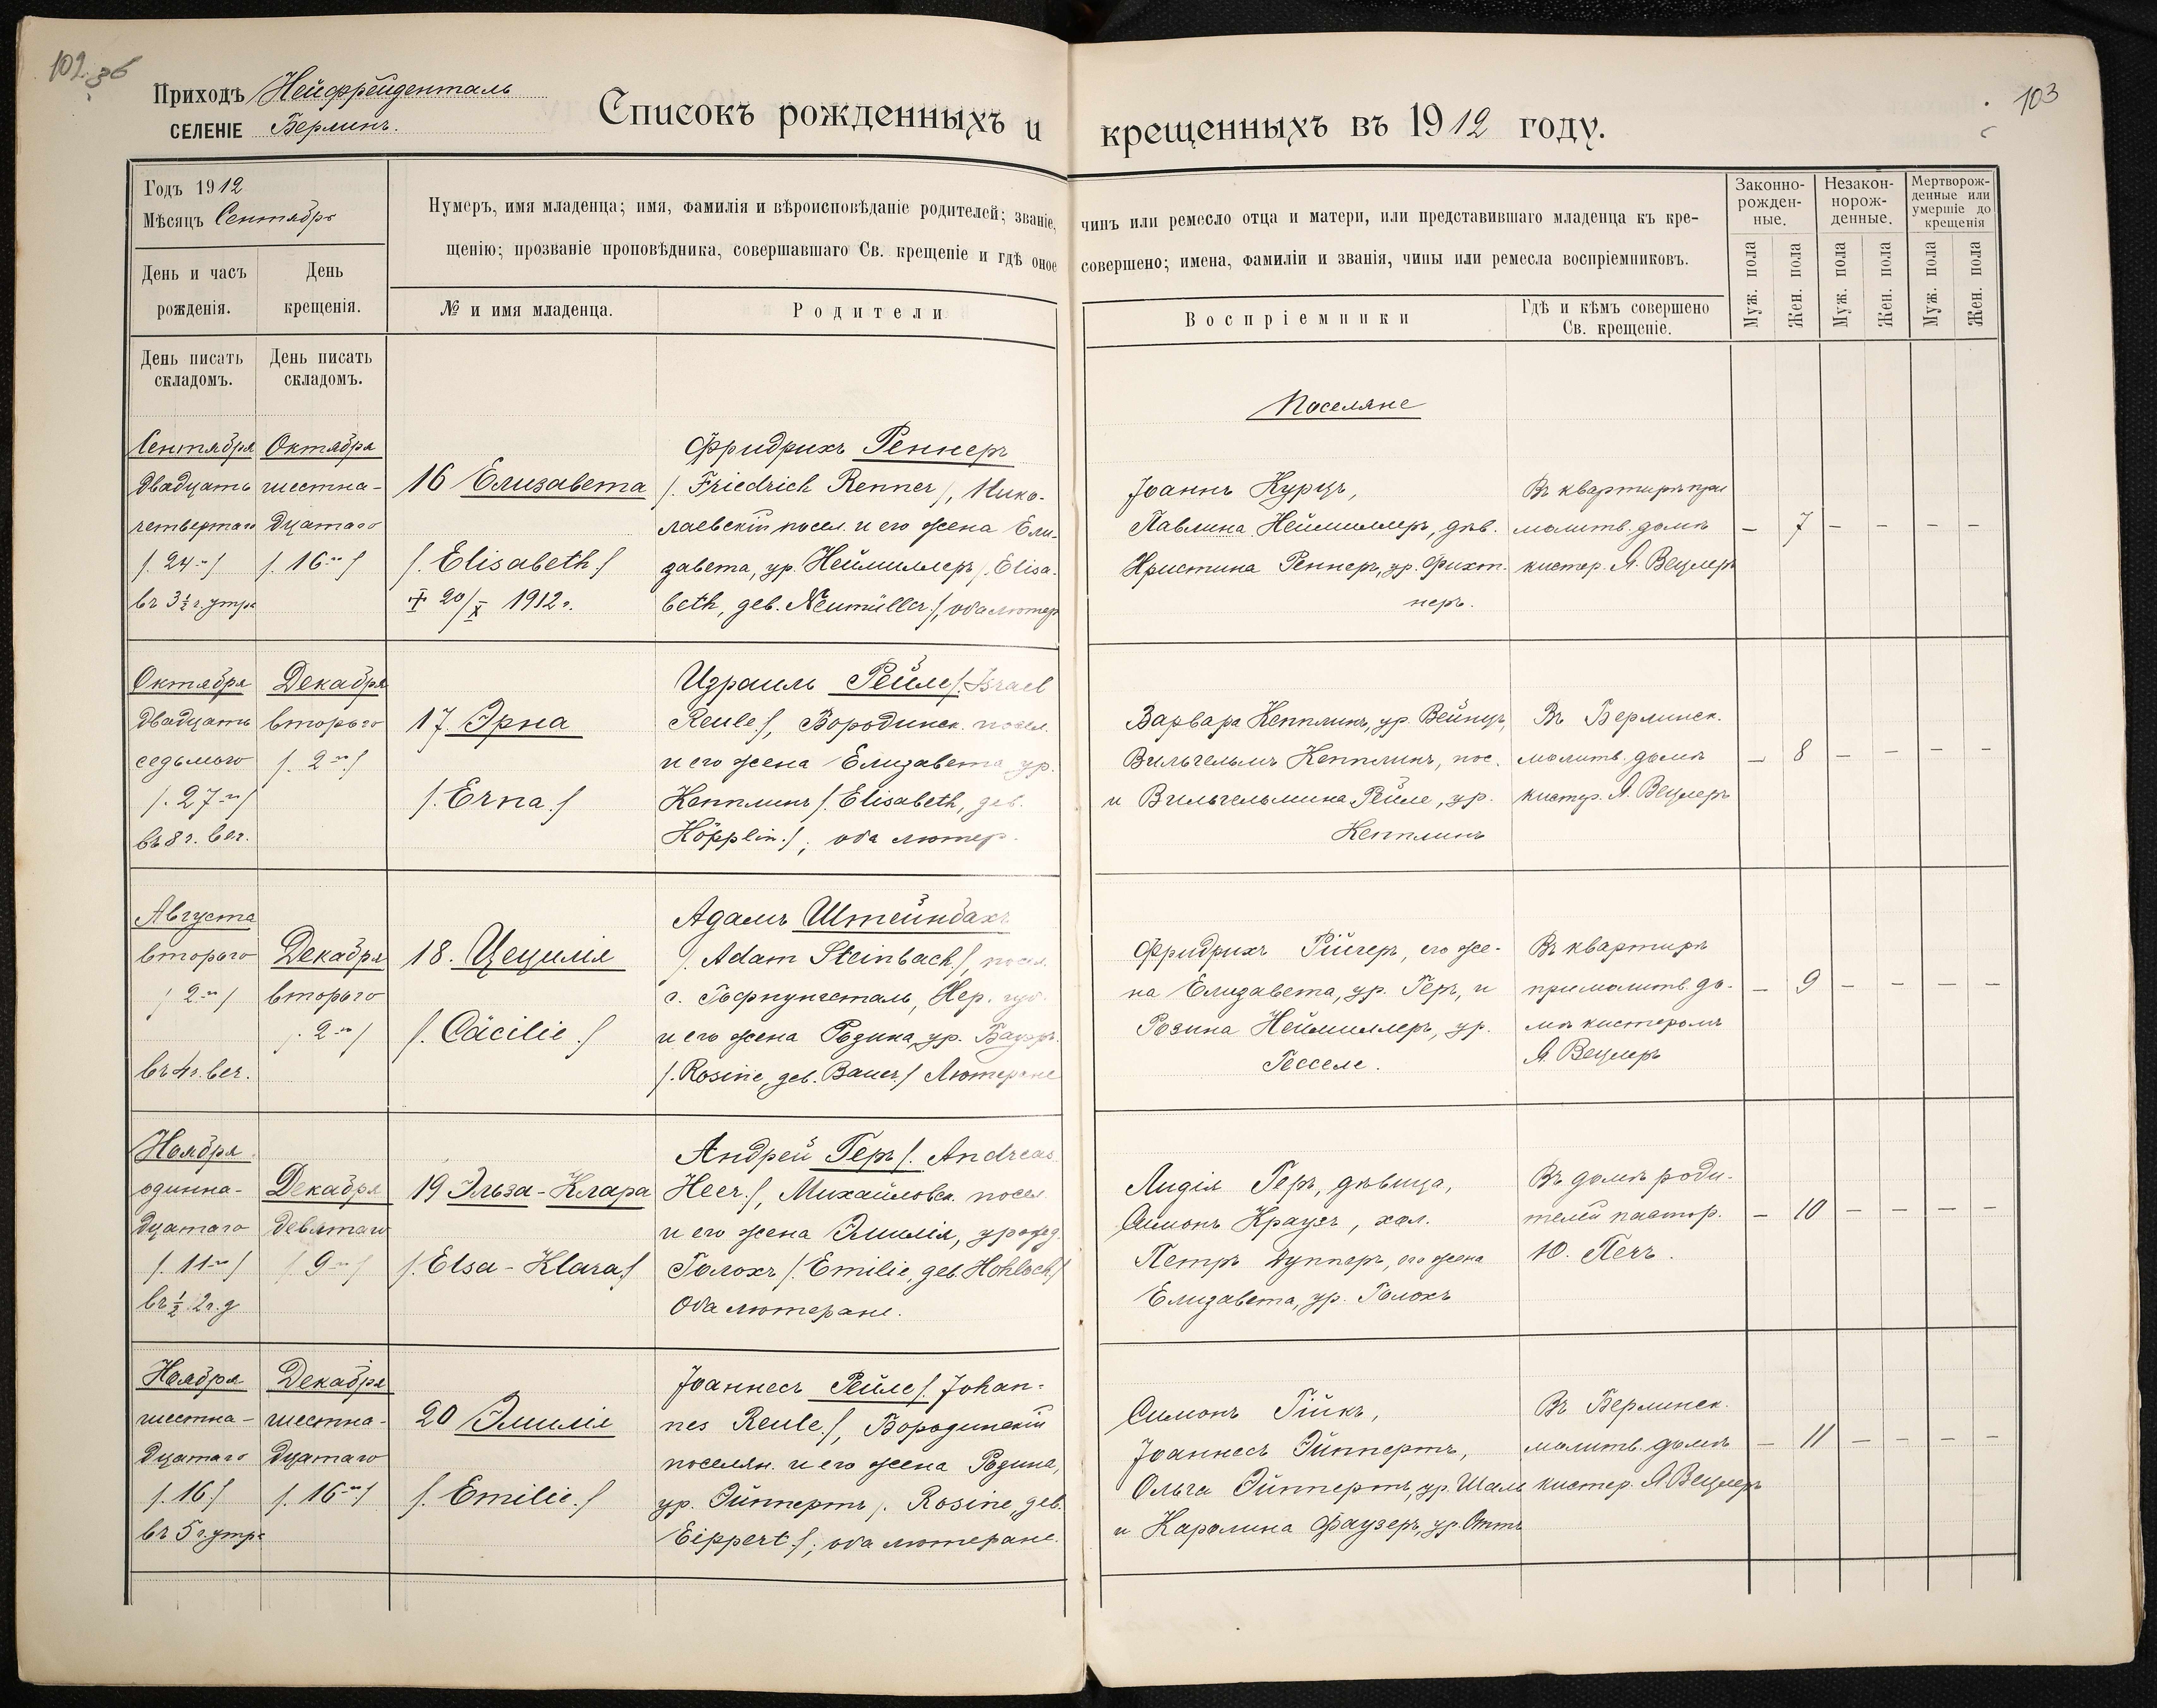 102 об
Приходъ Нейфрейденталь
СЕЛЕНІЕ Берлинъ.
Списокъ рожденныхъ и
Годъ 1912
Мѣсяцъ Сентябрь
Нумеръ, имя младенца; имя, фамилія и вѣроисповѣданіе родителей; званіе,
щенію; прозваніе проповѣдника, совершавшаго Св. крещеніе и гдѣ оное
День и часъ
рожденія.
День
крещенія.
№ и имя младенца.
Родители
День писать
складомъ.
День писать
складомъ.
Сентября
двадцать
четвертаго
/. 24го /
въ 3½ ч. утра
Октября
шестна-
дцатаго
/. 16го /
16 Елизавета
/. Elisabeth ./
† 20/X 1912 г.
Фридрихъ Реннеръ
/. Friedrich Renner /, Нико-
лаевскій посел. и его жена Ели-
завета, ур. Неймиллеръ /. Elisa-
beth, geb. Neumüller ./, оба лютер.
Октября
двадцать
седьмого
/. 27го /
въ 8 ч. веч.
Декабря
второго
/. 2го ./
17 Эрна
/. Erna ./
Израиль Рейле /. Israel
Reule ./, Бородинск. посел.
и его жена Елизавета ур.
Кепплинъ /. Elisabeth, geb.
Höpplin ./; оба лютер.
Августа
второго
/ 2го /
въ 4 ч. веч.
Декабря
второго
/. 2го /
18. Цецилія
/. Cäcilie ./
Адамъ Штейнбахъ
/. Adam Steinbach ./, посел.
с. Гофнунгсталь, Хер. губ.
и его жена Розина, ур. Бауэръ.
/. Rosine, geb. Bauer ./ Лютеране
Ноября
одинна-
дцатаго
/. 11го /
въ ½ 2 ч. д
Декабря
девятаго
/ 9го /
19 Эльза-Клара
/. Elsa-Klara ./
Андрей Геръ /. Andreas
Heer ./, Михайловск. посел.
и его жена Эмилія, урожд.
Голохъ /. Emilie, geb. Hohloch /
Оба лютеране.
Ноября
шестна-
дцатаго
/. 16 /
въ 5 ч. утра
Декабря
шестна-
дцатаго
/. 16го /
20 Эмилія
/. Emilie ./
Іоаннесъ Рейле /. Johan-
nes Reule ./, Бородинскій
поселян. и его жена Розина,
ур. Эйппертъ /. Rosine, geb.
Eippert ./; оба лютеране.
103
крещенныхъ въ 1912 году.
чинъ или ремесло отца и матери, или представившаго младенца къ кре-
совершено; имена, фамиліи и званія, чины или ремесла воспріемниковъ.
Воспріемники
Гдѣ и кѣмъ совершено
Св. крещеніе.
Законно-
рожден-
ные.
Незакон-
норож-
денные.
Мертворож-
денные или
умершіе до
крещенія
Муж. пола
Жен. пола
Муж. пола
Жен. пола
Муж. пола
Жен. пола
Поселяне
Іоаннъ Курцъ,
Павлина Неймиллеръ, дѣв.
Христина Реннеръ, ур. Фихт-
неръ.
Въ квартирѣ при
молитв. домѣ
кистер. Я. Вецлеръ
– 7 – – – –
Варвара Кепплинъ, ур. Вейнцъ,
Вильгельмъ Кепплинъ, пос.
и Вильгельмина Рейле, ур.
Кепплинъ
Въ Берлинск.
молитв. домѣ
кистер. Я. Вецлеръ
– 8 – – – –
Фридрихъ Гигеръ, его же-
на Елизавета, ур. Геръ, и
Розина Неймиллеръ, ур.
Гесселе.
Въ квартирѣ
при молитв. до-
мѣ кистеромъ
Я. Вецлеръ
– 9 – – – –
Лидія Геръ, дѣвица,
Симонъ Краузъ, хол.
Петръ Дупперъ, его жена
Елизавета, ур. Голохъ
Въ домѣ роди-
телей пастор.
Ю. Печъ.
– 10 – – – –
Симонъ Гикъ,
Іоаннесъ Эйппертъ,
Ольга Эйппертъ, ур. Шаль
и Каролина Фаузеръ, ур. Оттъ
Въ Берлинск.
молитв. домѣ
кистер. Я Вецлеръ
– 11 – – – –